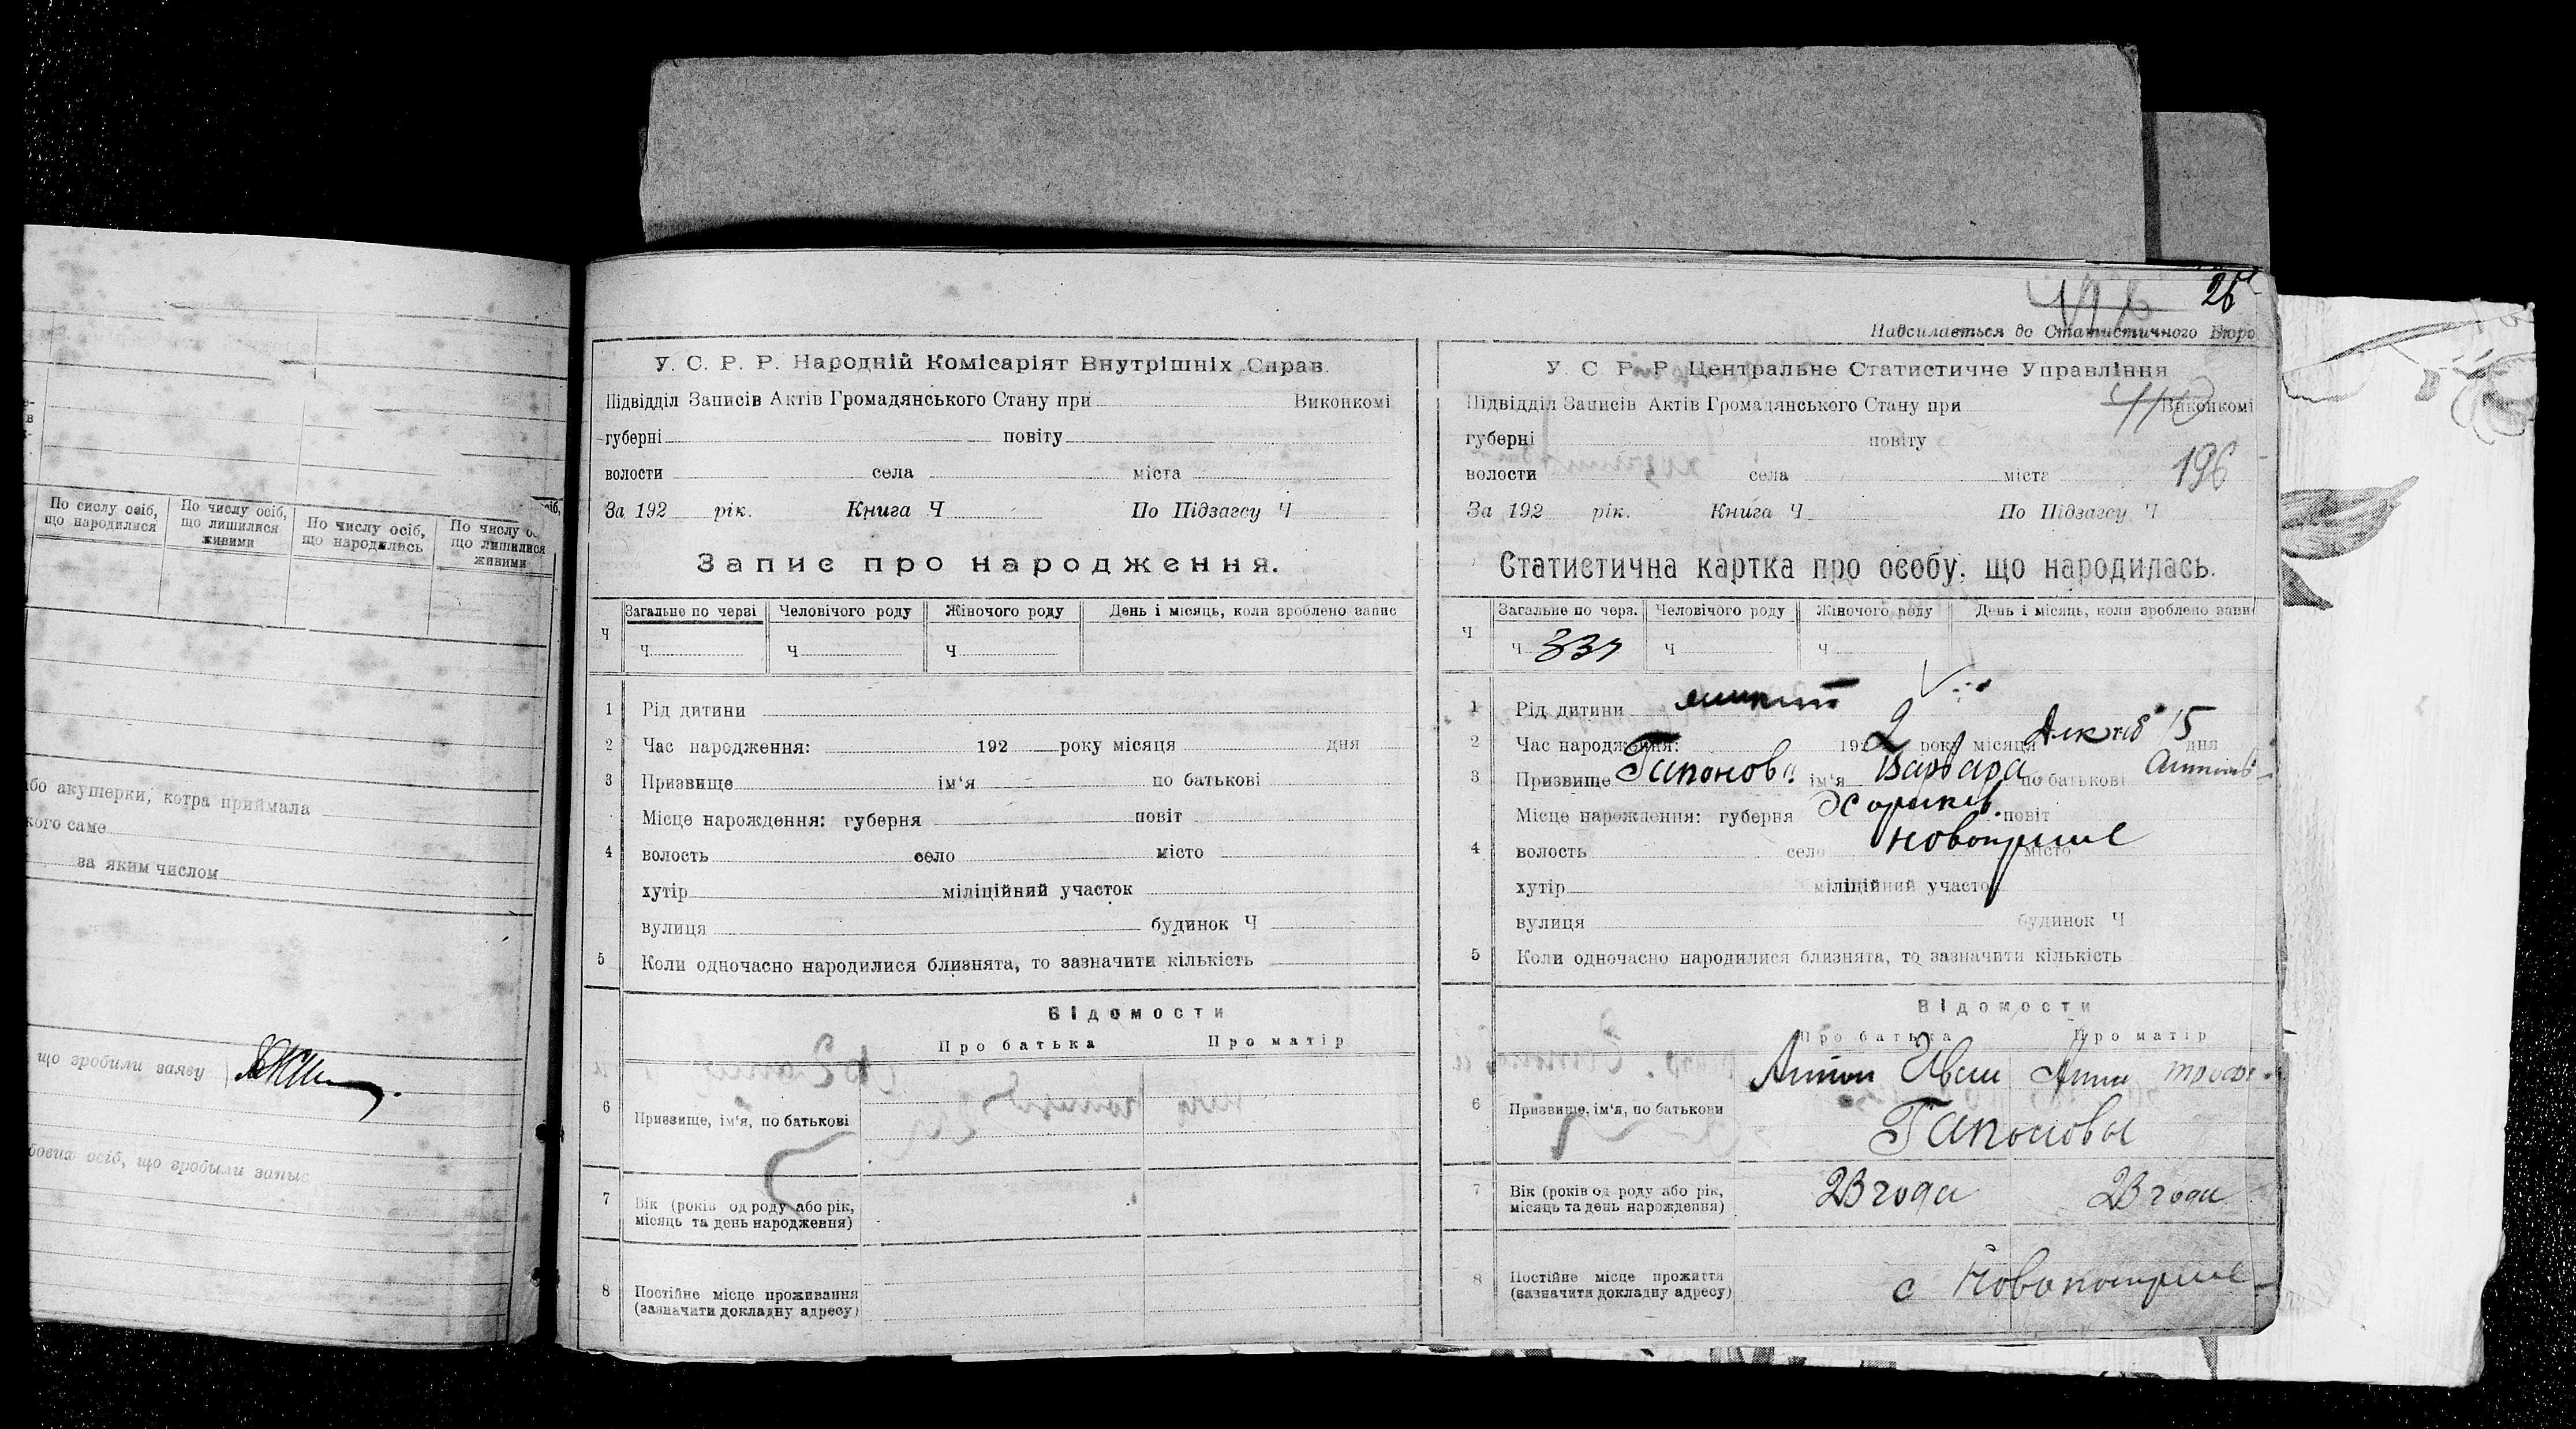 По сислу осіб, що народилися
По числу осіб, що лишилися живими
По числу осіб, що народились
По числу що лишилися живими
або акушерки, котра приймала
кого саме
за яким числом
що зробили заяву
осіб, що зробыли запыс
У. С. Р. Р. Народній Комісаріят Внутрішніх Справ.
Підвідділ Записів Актів Громадянського Стану при Виконкомі
губерні повіту
волости села міста
За 192 рік. Книга Ч По Підзагсу Ч
Запис про народження.
Ч Загальне по черзі Человічого роду Жіночого роду День і місяць, коли зроблено запис
Ч Ч Ч
1 Рід дитини
2 Час народження: 192 року місяця дня
3 Призвище ім‘я по батькові
Місце нарождення: губерня повіт
4 волость село місто
хутір міліційний участок
вулиця будинок Ч
5 Коли одночасно народилися близнята, то зазначити кількість
Відомости
Про батька Про матір
6 Призвище, ім‘я, по батькові
7 Вік (років од роду або рік, місяць та день народження)
8 Постійне місце проживання (зазначити докладну адресу)
26
Надсилається до Статистичного Бюро
У. С. Р. Р. Центральне Статистичне Управління
Підвідділ Записів Актів Громадянського Стану при Виконкомі
губерні повіту
волости села міста 196
За 192 рік. Книга Ч По Підзагсу Ч
Статистична картка про особу, що народилась.
Ч Загальне по черз. Человічого роду Жіночого роду День і місяць, коли зроблено запи
Ч Ч Ч
1 Рід дитини
2 Час народження: 1922 року місяця 15 дня
3 Призвище Гапонова ім‘я Варвара по батькові
Місце нарождення: губерня Харьков. повіт
4 волость село місто
хутір міліційний участок
вулиця будинок Ч
5 Коли одночасно народилися близнята, то зазначити кількість
Відомости
Про батька Про матір
6 Призвище, ім‘я, по батькови Антон Иван Анна
Гапоновы
7 Вік (років од роду або рік, місяць та день нарождення) 23 года 23 года
8 Постійне місце прожиття (зазначити докладну адресу) с